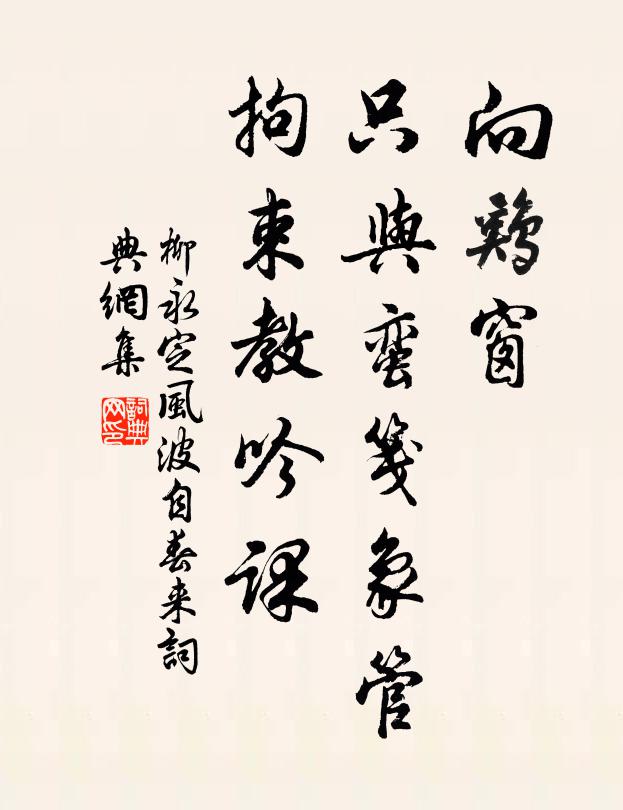 向鷄窗
只與蛮箋象管
拘束教吟课
柳永定風波自春来詞
典網集
詞典网印